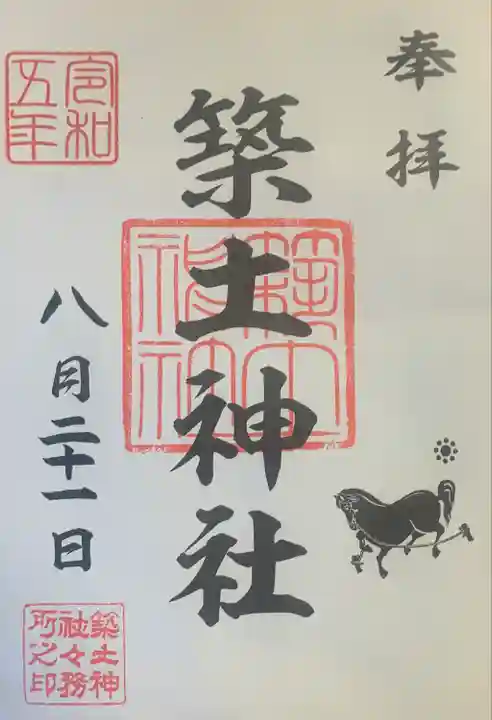 奉拝
築土神社
築土神社
令和
五年
八月二十一日
築土神
社々務
所之印